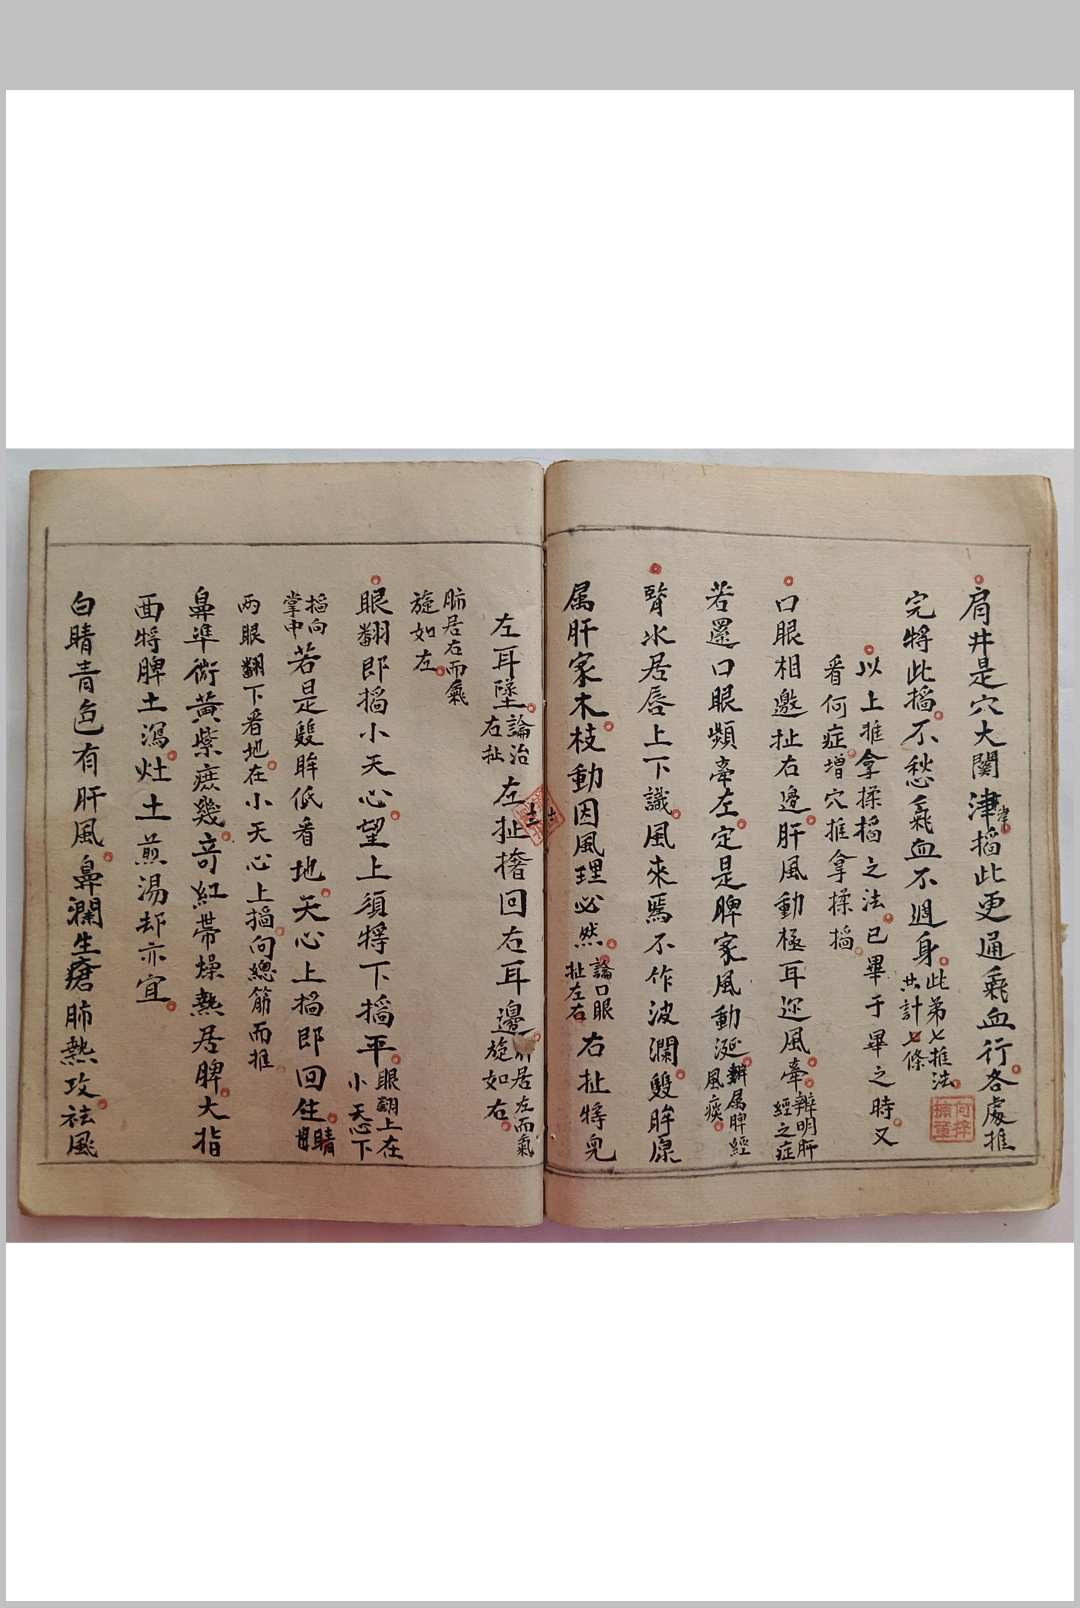 肩井是穴大關津掐此更通氣血行各處推
津
完將此掐不愁氣血不週身此第七推法
共計七條
以上推拿揉掐之法已畢于畢之時又
看何症增穴推拿揉掐
口眼相邀扯右邊肝風動極耳迎風牽辨明肝
經之症
若還口眼頻牽左定是脾家風動涎辨属脾經
風痰
腎水居唇上下識風來焉不作波瀾雙眸原
属肝家木枝動因風理必然論口眼
扯左右
右扯將兒
左耳墜論治
右扯
左扯擔回右耳邊肝居左而氣
旋如右
肺居右而氣
旋如左
眼翻即掐小天心望上須將下掐平眼翻上在
小天心下
掐向
掌中
若是雙眸低看地天心上掐即回睛
兩眼翻下看地在小天心上掐向總筋而推
鼻準微黃紫庶幾奇紅帶燥熱居脾大指
面將脾土瀉灶土煎湯却亦宜
白睛青色有肝風鼻瀾生瘡肺熱攻祛風
何梓
楠章